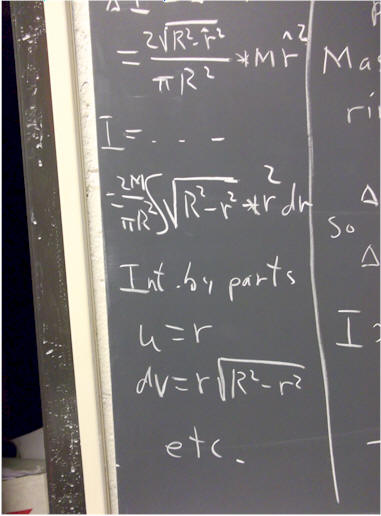 ΔI
= 2√(R²-r̂²) / πR² * M r̂²
I = . . -
= 2M/πR² ∫ √(R²-r²) * r² dr
Int. by parts
u = r
dv = r√(R²-r²)
etc.
Ma
ri
Δ
So
Δ
I